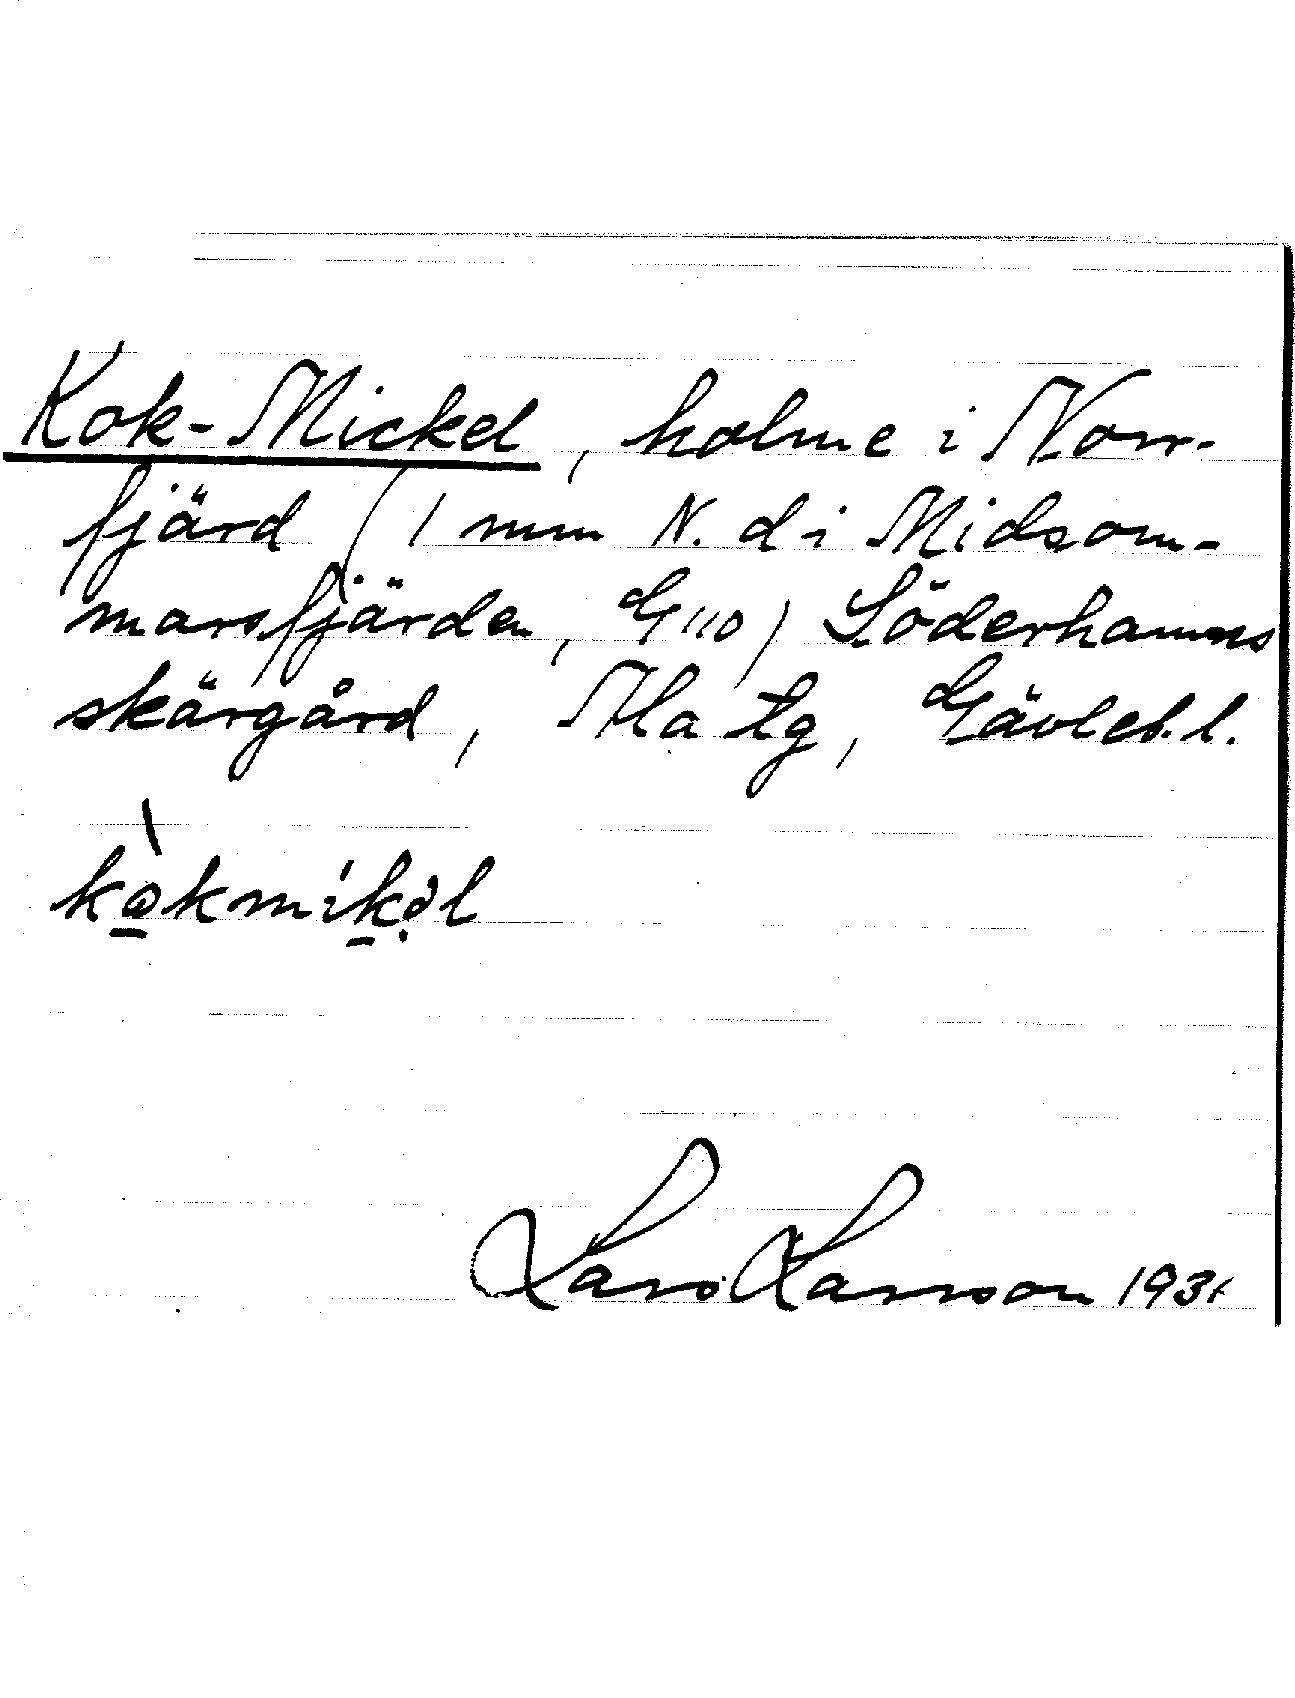 Kok-Mickel, holme i Norr-
fjärd (1 mm N. d i Midsom-
marsfjärden, G 110) Söderhamns
skärgård, Ala tg, Gävleb. l.
Lars Larsson 1931